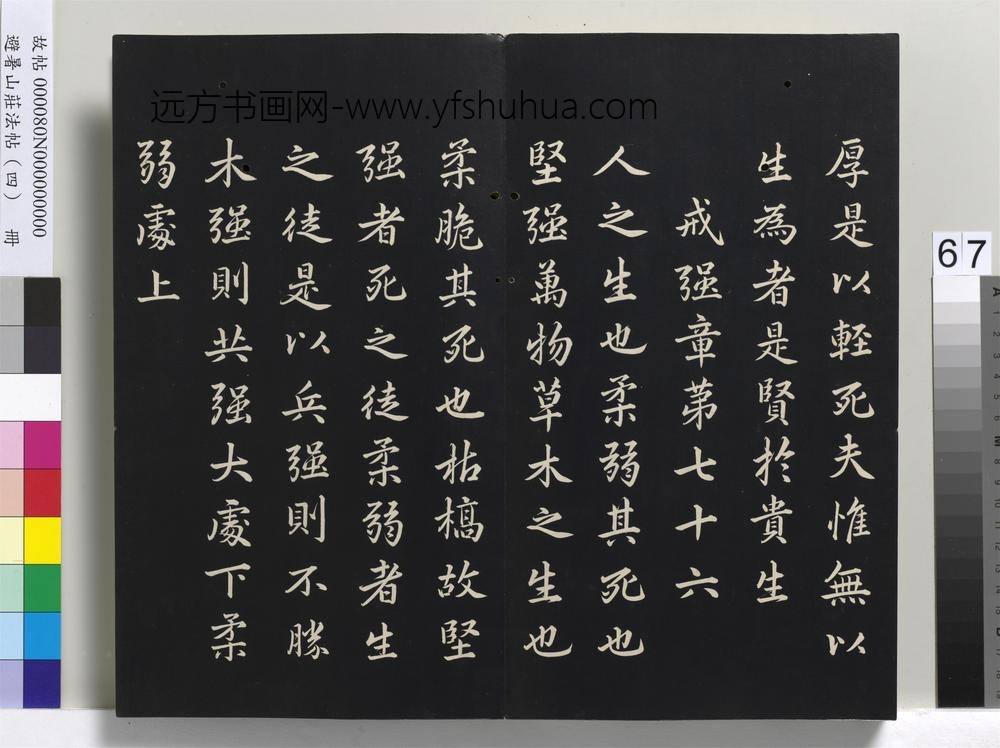 厚是以輕死夫惟無以
生為者是賢於貴生
戒强章第七十六
人之生也柔弱其死也
堅强萬物草木之生也
柔脆其死也枯槁故堅
强者死之徒柔弱者生
之徒是以兵强則不勝
木强則共强大處下柔
弱處上
远方书画网-www.yfshuhua.com
故帖 000080N000000000
避暑山莊法帖（四） 冊
67